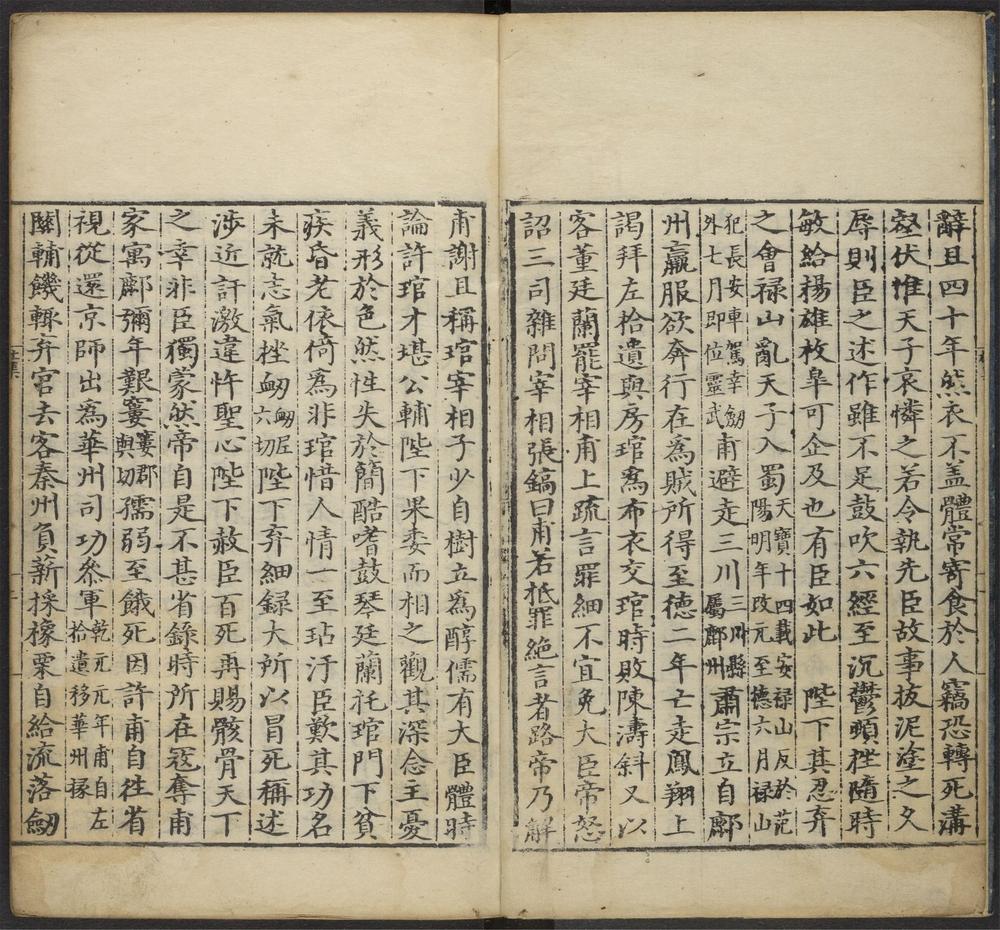 辭且四十年然衣不盖體常寄食於人竊恐轉死溝
壑伏惟天子哀憐之若令執先臣故事拔泥塗之久
辱則臣之述作雖不足鼓吹六經至沉鬱頓挫隨時
敏給揚雄枚臯可企及也有臣如此 陛下其忍弃
之會禄山亂天子入蜀天寶十四載安禄山反於范陽明年改元至德六月禄山
犯長安車駕幸劔外七月即位靈武甫避走三川三川縣屬鄜州肅宗立自鄜
州羸服欲奔行在爲賊所得至德二年亡走鳳翔上
謁拜左拾遺與房琯爲布衣交琯時敗陳濤斜又以
客董廷蘭罷宰相甫上疏言罪細不宜免大臣帝怒
詔三司雜問宰相張鎬曰甫若抵罪絶言者路帝乃解
甫謝且稱琯宰相子少自樹立爲醇儒有大臣體時
論許琯才堪公輔陛下果委而相之觀其深念主憂
義形於色然性失於簡酷嗜鼓琴廷蘭托琯門下貧
疾昏老依倚爲非琯惜人情一至玷汙臣歎其功名
未就志氣挫衂衂尼六切陛下弃細録大所以冒死稱述
涉近訐激違忤聖心陛下赦臣百死再賜骸骨天下
之幸非臣獨蒙然帝自是不甚省錄時所在寇奪甫
家寓鄜彌年艱窶窶郡與切孺弱至餓死因許甫自往省
視從還京師出爲華州司功叅軍乾元元年甫自左拾遺移華州掾
關輔饑輙弃官去客秦州負薪採橡栗自給流落劔